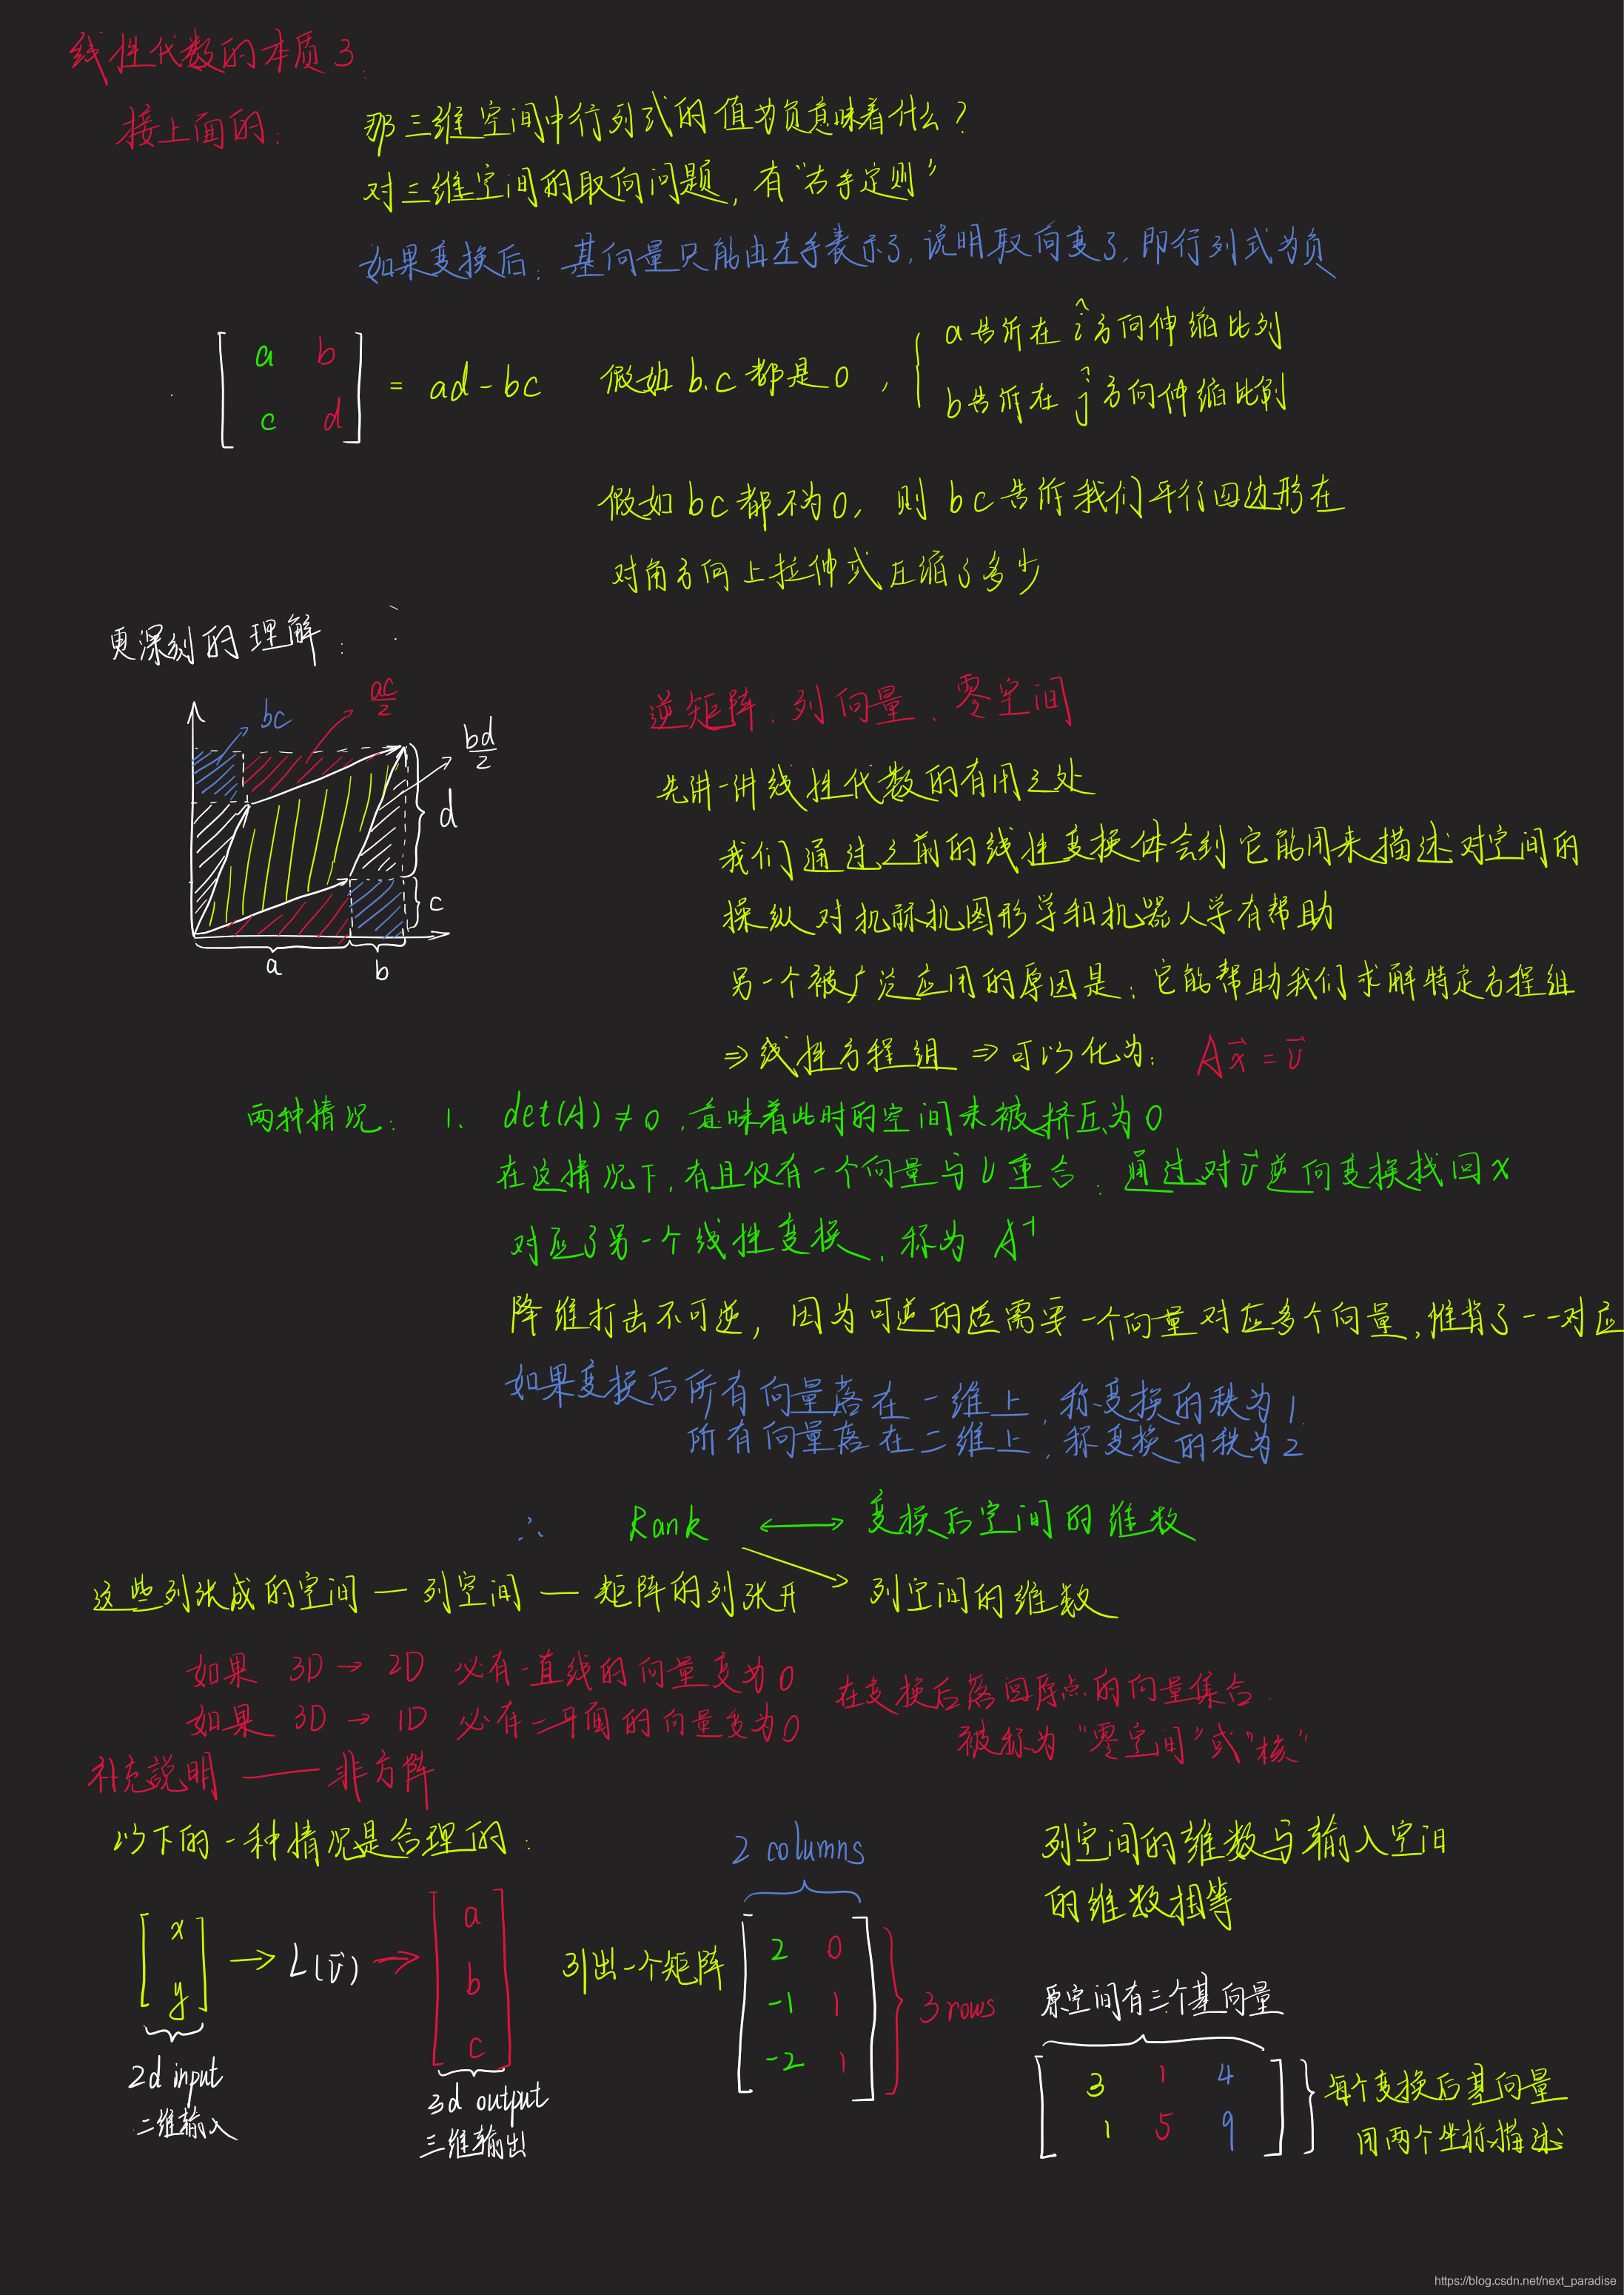 线性代数的本质3.
接上面的: 那三维空间中行列式的值为负意味着什么?
对三维空间的取向问题, 有"右手定则"
如果变换后, 基向量只能由左手表示了, 说明取向变了, 即行列式为负
a b
c d
= ad-bc 假如b.c都是0,
a告诉在i^方向伸缩比列
b告诉在j^方向伸缩比例
假如bc都不为0, 则bc告诉我们平行四边形在
对角方向上拉伸或压缩了多少
更深刻的理解:
bc
ac/2
bd/2
d
c
a b
逆矩阵、列向量、零空间
先讲一讲线性代数的有用之处
我们通过之前的线性变换体会到它能用来描述对空间的
操纵 对机脑机图形学和机器人学有帮助
另一个被广泛应用的原因是: 它能帮助我们求解特定方程组
⇒线性方程组 ⇒可以化为: Ax⃗=v⃗
两种情况: 1、 det(A)≠0, 意味着此时的空间未被挤压为0
在这情况下, 有且仅有一个向量与v重合: 通过对v⃗逆向变换找回x
对应了另一个线性变换, 称为 A⁻¹
降维打击不可逆, 因为可逆的话需要一个向量对应多个向量, 违背了一一对应
如果变换后所有向量落在一维上, 称变换的秩为1.
所有向量落在二维上, 称变换的秩为2
∴ Rank ⟷ 变换后空间的维数
这些列张成的空间 — 列空间 — 矩阵的列张开 → 列空间的维数
如果 3D → 2D 必有一直线的向量变为0
如果 3D → 1D 必有一平面的向量变为0
在变换后落回原点的向量集合.
被称为"零空间"或"核"
补充説明 —— 非方阵
以下的一种情况是合理的:
x
y
→ L(v⃗) →
a
b
c
2d input
二维输入
3d output
三维输出
引出一个矩阵
2 columns
2 0
-1 1
-2 1
3 rows
列空间的维数与输入空间
的维数相等
原空间有三个基向量
3 1 4
1 5 9
每个变换后基向量
用两个坐标描述
https://blog.csdn.net/next_paradise